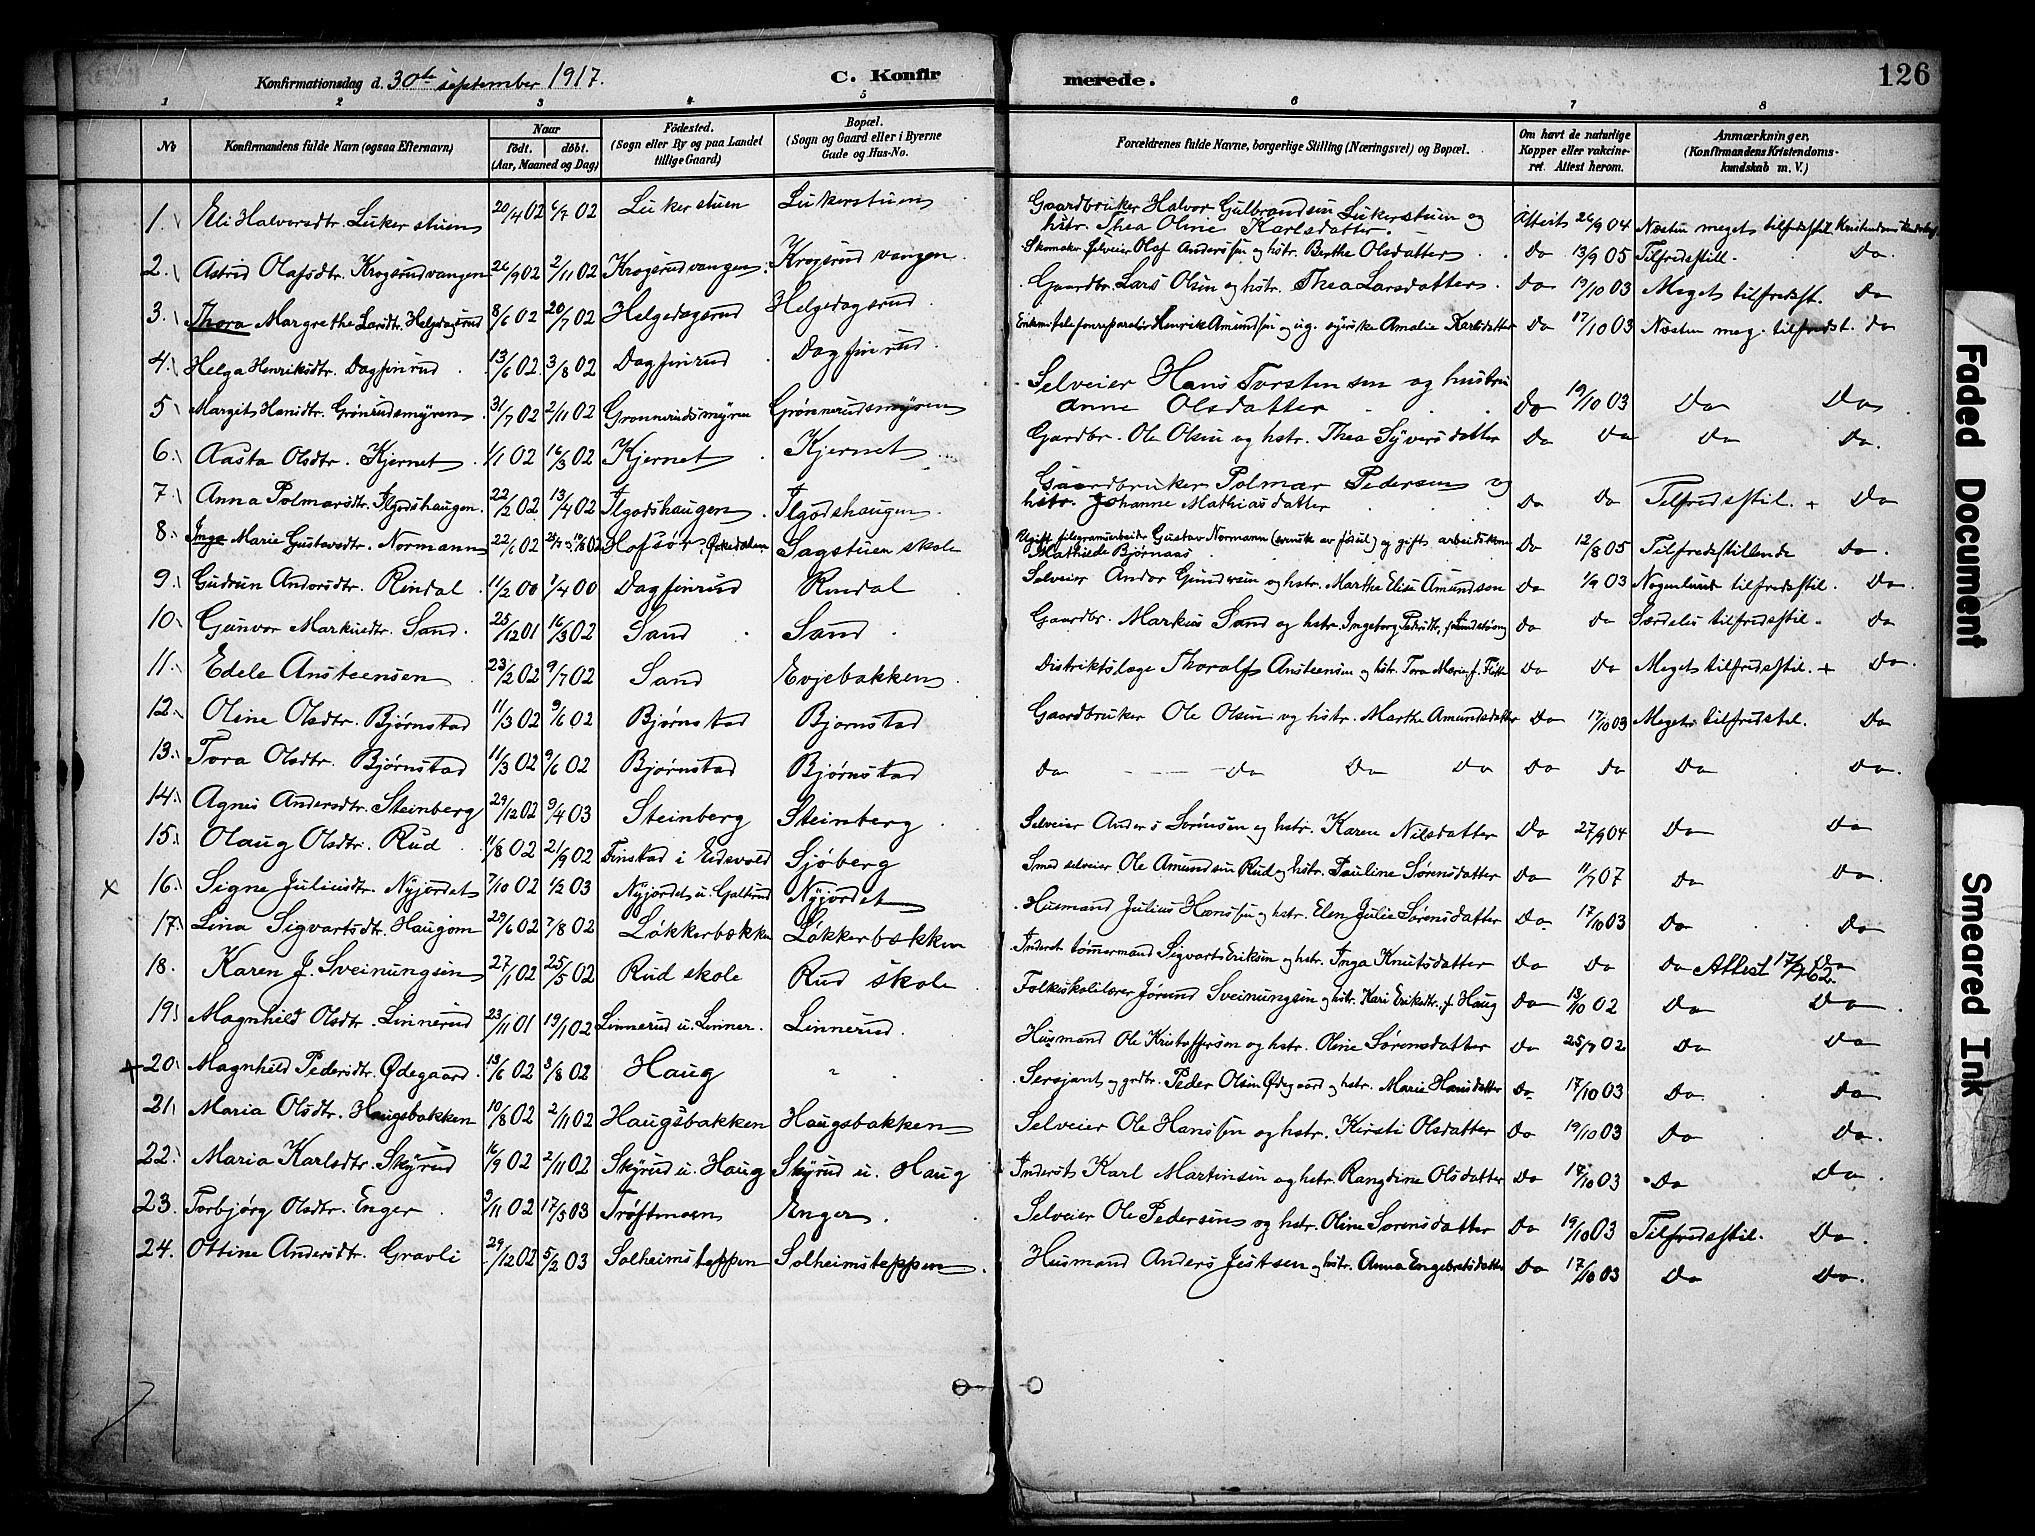 Konfirmationsdag d. 30te september 1917. C. Konfirmerede. 126
1 2 3 4 5 6 7 8
No Konfirmandens fulde Navn (ogsaa Efternavn) Naar født. døbt. (Aar, Maaned og Dag) Fødested. (Sogn eller By og paa Landet tillige Gaard) Bopæl. (Sogn og Gaard eller i Byerne Gade og Hus-No. Forældrenes fulde Navne, borgerlige Stilling (Næringsvei) og Bopæl. Om havt de naturlige Kopper eller vakcineret. Attest herom. Anmærkninger. (Konfirmandens Kristendomskundskab m. V.)
1. Eli Halvorsdtr. Lukerstuen 20/4 02 6/7 02 Lukerstuen Lukerstuen Gaardbruker Halvor Gulbrandsen Lukerstuen og hstr. Thea Oline Karlsdatter. Attest 26/9 04 Næsten meget tilfredstil. Kristendoms
2. Astrid Olafsdtr. Krogsrudvangen 26/9 02 2/11 02 Krogsrudvangen. Krogsrudvangen. Skomaker selveier Olaf Anderssen og hstr. Berthe Olsdatter Do 13/9 05 Tilfredsstill. Do.
3. Thora Margrethe Larsdtr. Helgedagsrud 8/6 02 20/7 02 Helgedagsrud Helgedagsrud. Gaardbr. Lars Olsen og hstr. Thea Larsdatter. Do 19/10 03 Meget tilfredsst. Do
4. Helga Henriksdtr. Dagfinrud 13/6 02 3/8 02 Dagfinrud Dagfinrud Enkem. telefonreparatør Henrik Amundsen og ug. syerske Amalie Karlsdatter Do 17/10 03 Næsten meg. tilfredst. do
5 Margit Hansdtr. Grønrudsmyren 31/7 02 2/11 02 Grønnerudsmyren Grønnerudsmyren Selveier Hans Torstensen og hustru Anne Olsdatter Do 19/10 03 Do Do
6. Aasta Olsdtr. Kjernet 1/1 02 16/3 02 Kjernet Kjernet Gardbr. Ole Olsen og hstr. Thea Syversdatter Do Do Do Do.
7. Anna Polmarsdtr. Ilgodshaugen 22/2 02 13/4 02 Ilgodshaugen Ilgodshaugen. Gaardbruker Polmar Pedersen og hstr. Johanne Mathiasdatter Do Do Tilfredsstil. + Do
8. Inga Marie Gustavsdtr. Normann 22/6 02 Hofsør, Sagstuen skole Ugift filegramarbeider Gustav Normann og gift arbeidskone Mathilde Bjørnaas Do 12/8 05 Tilfredsstillende Do.
9. Gudrun Andorsdtr. Rindal 11/2 00 1/4 00 Dagfinrud Rindal Selveier Andor Gundersen og hstr. Marthe Elise Amundsen Do 1/9 03 Nogenlunde tilfredsstil. Do
10. Gunvor Markusdtr. Sand. 25/12 01 16/3 02 Sand Sand Gaardbr. Markus Sand og hstr. Ingeborg Pedersdtr. Do Do Særdeles tilfredsstil. Do
11. Edele Ansteensen 23/2 02 9/7 02 Sand Evjebakken Distriktslæge Thoralf Ansteensen og hstr. Tora Marie f. Do Do Meget tilfredsstil. + Do.
12. Oline Olsdtr. Bjørnstad 11/3 02 9/6 02 Bjørnstad Bjørnstad Gaardbruker Ole Olsen og hstr. Marthe Amundsdatter Do 17/10 03 Meget tilfredsstil. Do
13. Tora Olsdtr. Bjørnstad 11/3 02 9/6 02 Bjørnstad Bjørnstad Do Do Do Do Do Do Do Do.
14. Agnes Andersdtr. Steinberg 29/12 02 9/4 03 Steinberg Steinberg Selveier Anders Sørensen og hstr. Karen Nilsdatter Do 27/9 04 Do Do
15. Olaug Olsdtr. Rud 11/8 02 21/9 02 Finstad i Eidsvold Sjøberg Smed selveier Ole Amundsen Rud og hstr. Pauline Sørensdatter Do 11/7 07 Do Do.
x 16. Signe Juliusdtr. Nyjordet 7/10 02 1/2 03 Nyjordet u. Galterud Nyjordet Husmand Julius Hanssen og hstr. Elen Julie Sørensdatter Do. 17/10 03 Do Do
17. Lina Sigvartsdtr. Haugom 29/6 02 7/8 02 Løkkerbækken Løkkerbækken Inderst tømmermand Sigvart Eriksen og hstr. Inga Knutsdatter Do Do Do Attest 17/9 62 Do
18. Karen J. Sveinungsen 27/1 02 25/5 02 Rud skole Rud skole Folkeskolelærer Jørund Sveinungsen og hstr. Kari Eriksdtr. f. Haug Do 13/10 02 Do Do
19. Magnhild Olsdtr. Linnerud 23/11 01 19/1 02 Linnerud u. Linner. Linnerud. Husmand Ole Kristoffersen og hstr. Oline Sørensdatter Do 25/7 02 Do Do
x 20. Magnhild Pedersdtr. Ødegaard 13/6 02 3/8 02 Haug " Sersjant og grdbr. Peder Olsen Ødegaard og hstr. Marie Hansdatter Do. 17/10 03 Do Do
21. Maria Olsdtr. Haugsbakken 10/8 02 2/11 02 Haugsbakken Haugsbakken Selveier Ole Hanssen og hstr. Kirsti Olsdatter Do 19/10 03 Do Do.
22. Maria Karlsdtr. Skyrud 16/9 02 2/11 02 Skyrud u. Haug Skyrud u. Haug Inderst Karl Martinsen og hstr. Rangdine Olsdatter Do 17/10 03 Do Do
23. Torbjørg Olsdtr. Enger 2/11 02 17/5 03 Trøftmoen Enger Selveier Ole Pedersen og hstr. Oline Sørensdatter Do 19/10 03 Tilfredsstil. Do.
24. Ottine Andersdtr. Gravli 29/12 02 5/2 03 Solheimsteppen Solheimsteppen Husmand Anders Justsen og hstr. Anna Engebretsdatter Do 17/10 03 Do Do.
Faded Document
Smeared Ink